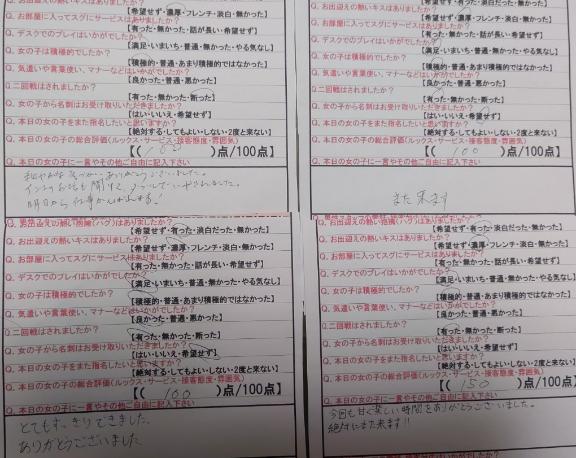 Q. お出迎えの熱いキスはありましたか?
【希望せず・濃厚・フレンチ・淡白・無かった】
Q. お部屋に入ってスグにサービスはありましたか?
【有った・無かった・話が長い・希望せず】
Q. デスクでのプレイはいかがでしたか?
【満足・いまいち・普通・無かった・やる気なし】
Q. 女の子は積極的でしたか?
【積極的・普通・あまり積極的ではなかった】
Q. 気遣いや言葉使い、マナーなどはいかがでしたか?
【良かった・普通・悪かった】
Q.二回戦はされましたか?
【有った・無かった・断った】
Q. 女の子から名刺はお受け取りいただきましたか?
【はい・いいえ・希望せず】
Q. 本日の女の子をまた指名したいと思いますか?
【絶対する・してもよい・しない・2度と来ない】
Q. 本日の女の子の総合評価(ルックス・サービス・接客態度・雰囲気)
【( )点/100点】
Q. 本日の女の子に一言やその他ご自由に記入下さい
明日から仕事がんばれる!
【希望せず・濃厚・フレンチ・淡白・無かった】
Q. お部屋に入ってスグにサービスはありましたか?
【有った・無かった・話が長い・希望せず】
Q. デスクでのプレイはいかがでしたか?
【満足・いまいち・普通・無かった・やる気なし】
Q. 女の子は積極的でしたか?
【積極的・普通・あまり積極的ではなかった】
Q. 気遣いや言葉使い、マナーなどはいかがでしたか?
【良かった・普通・悪かった】
Q.二回戦はされましたか?
【有った・無かった・断った】
Q. 女の子から名刺はお受け取りいただきましたか?
【はい・いいえ・希望せず】
Q. 本日の女の子をまた指名したいと思いますか?
【絶対する・してもよい・しない・2度と来ない】
Q. 本日の女の子の総合評価(ルックス・サービス・接客態度・雰囲気)
【( 100 )点/100点】
Q. 本日の女の子に一言やその他ご自由に記入下さい
また来ます
Q. お出迎えの熱い抱擁(ハグ)はありましたか?
【希望せず・有った・淡白だった・無かった】
Q. お出迎えの熱いキスはありましたか?
【希望せず・濃厚・フレンチ・淡白・無かった】
Q. お部屋に入ってスグにサービスはありましたか?
【有った・無かった・話が長い・希望せず】
Q. デスクでのプレイはいかがでしたか?
【満足・いまいち・普通・無かった・やる気なし】
Q. 女の子は積極的でしたか?
【積極的・普通・あまり積極的ではなかった】
Q. 気遣いや言葉使い、マナーなどはいかがでしたか?
【良かった・普通・悪かった】
Q.二回戦はされましたか?
【有った・無かった・断った】
Q. 女の子から名刺はお受け取りいただきましたか?
【はい・いいえ・希望せず】
Q. 本日の女の子をまた指名したいと思いますか?
【絶対する・してもよい・しない・2度と来ない】
Q. 本日の女の子の総合評価(ルックス・サービス・接客態度・雰囲気)
【( 100 )点/100点】
Q. 本日の女の子に一言やその他ご自由に記入下さい
とてもすっきりできました。
ありがとうございました
Q. お出迎えの熱い抱擁(ハグ)はありましたか?
【希望せず・有った・淡白だった・無かった】
Q. お出迎えの熱いキスはありましたか?
【希望せず・濃厚・フレンチ・淡白・無かった】
Q. お部屋に入ってスグにサービスはありましたか?
【有った・無かった・話が長い・希望せず】
Q. デスクでのプレイはいかがでしたか?
【満足・いまいち・普通・無かった・やる気なし】
Q. 女の子は積極的でしたか?
【積極的・普通・あまり積極的ではなかった】
Q. 気遣いや言葉使い、マナーなどはいかがでしたか?
【良かった・普通・悪かった】
Q.二回戦はされましたか?
【有った・無かった・断った】
Q. 女の子から名刺はお受け取りいただきましたか?
【はい・いいえ・希望せず】
Q. 本日の女の子をまた指名したいと思いますか?
【絶対する・してもよい・しない・2度と来ない】
Q. 本日の女の子の総合評価(ルックス・サービス・接客態度・雰囲気)
【( 150 )点/100点】
Q. 本日の女の子に一言やその他ご自由に記入下さい
今回も甘く楽しい時間をありがとうございました。
絶対にまた来ます!!